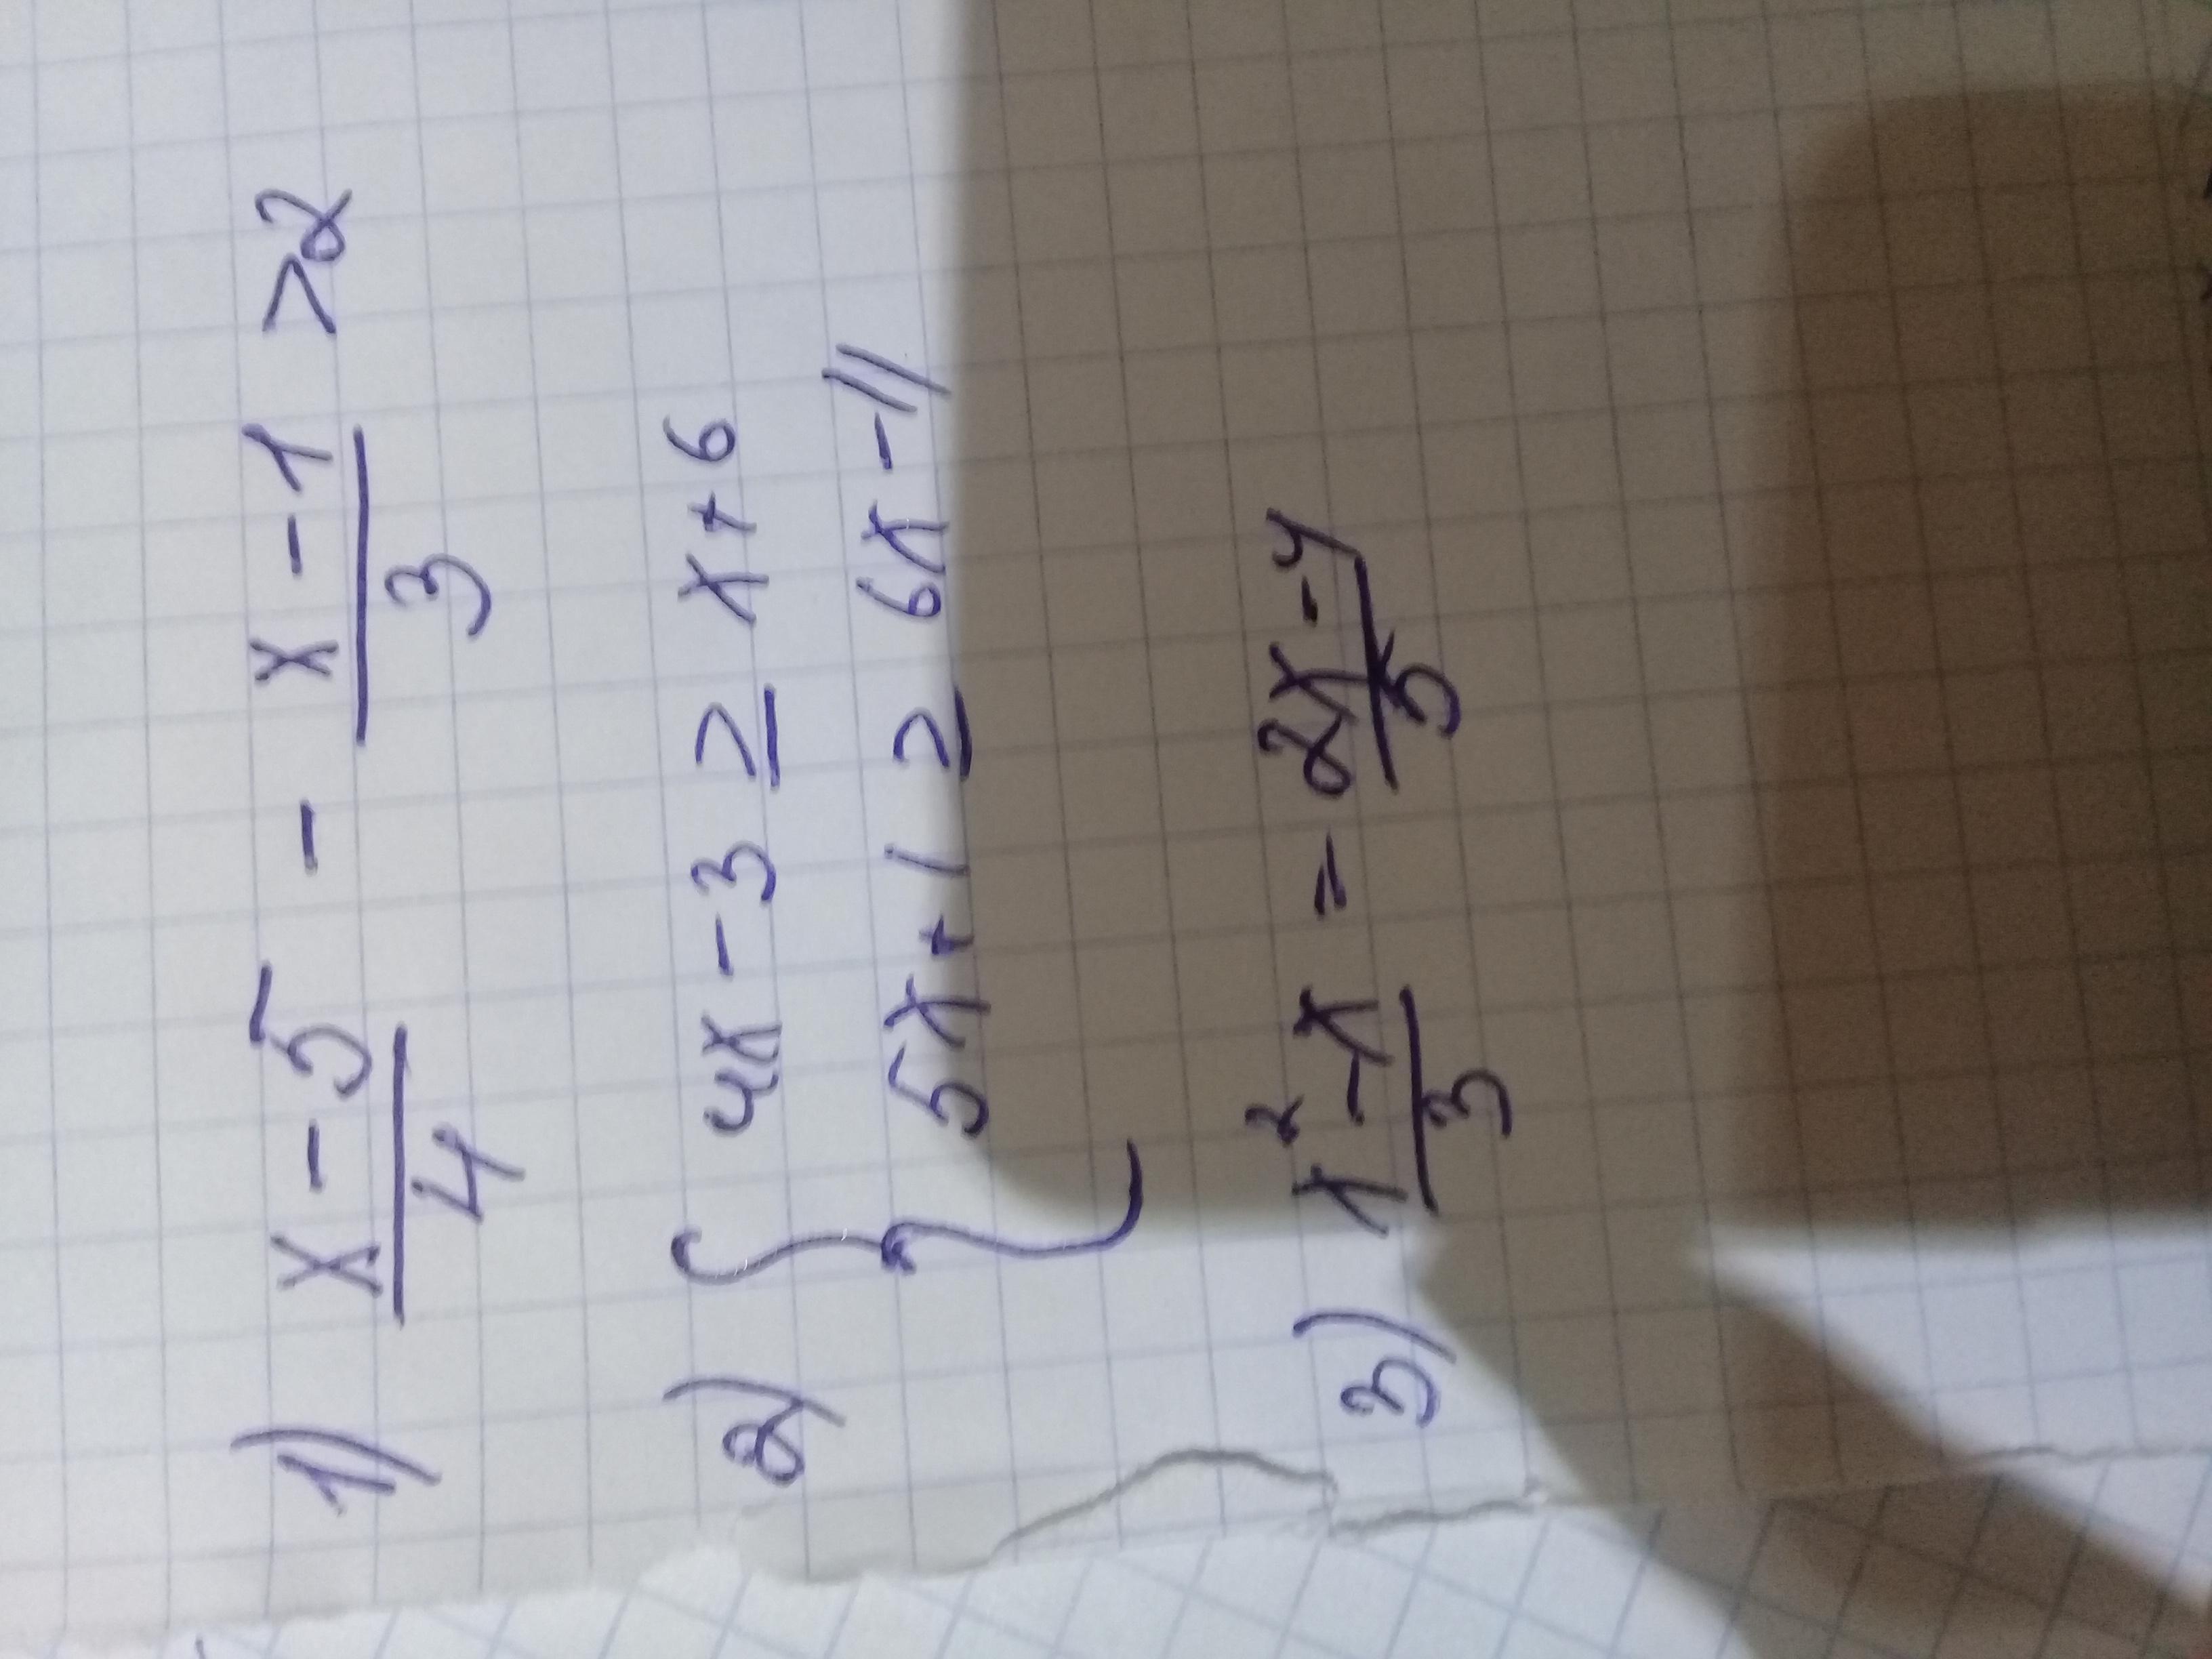 1) x-5/4 - x-1/3 >2
2) { 4x-3 ≥ x+6
5x+1 ≥ 6x-11
3) x²-x/3 = 2x-4/5